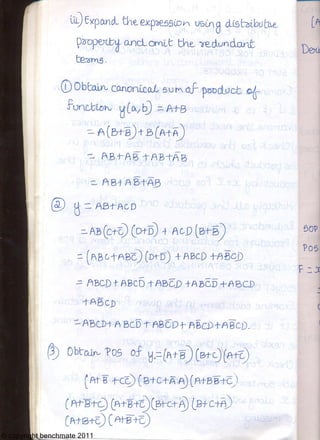 ii) Expand the expression using distributive
property and omit the redundant
terms.
① Obtain canonical sum of product of
function y(a,b) = A+B
= A(B+B̅)+B(A+A̅)
= AB+AB̅+AB+A̅B
= AB+AB̅+A̅B
② y = AB+ACD
= AB(C+C̅)(D+D̅) + ACD(B+B̅)
= (ABC+ABC̅)(D+D̅) + ABCD+AB̅CD
= ABCD+ABCD̅+ABC̅D+ABC̅D̅+ABCD
+AB̅CD
= ABCD+ABCD̅+ABC̅D+ABC̅D̅+AB̅CD.
③ Obtain POS of y=(A+B̅)(B+C)(A+C̅)
(A+B̅+CC̅)(B+C+AA̅)(A+BB̅+C̅)
(A+B̅+C)(A+B̅+C̅)(B+C+A)(B+C+A̅)
(A+B+C̅)(A+B̅+C̅)
SOP
POS
benchmate 2011